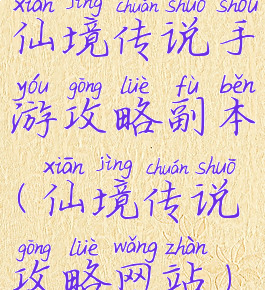 xiān jìng chuán shuō shǒu
仙境传说手
yóu gōng lüè fù běn
游攻略副本
xiān jìng chuán shuō
(仙境传说
gōng lüè wǎng zhàn
攻略网站)